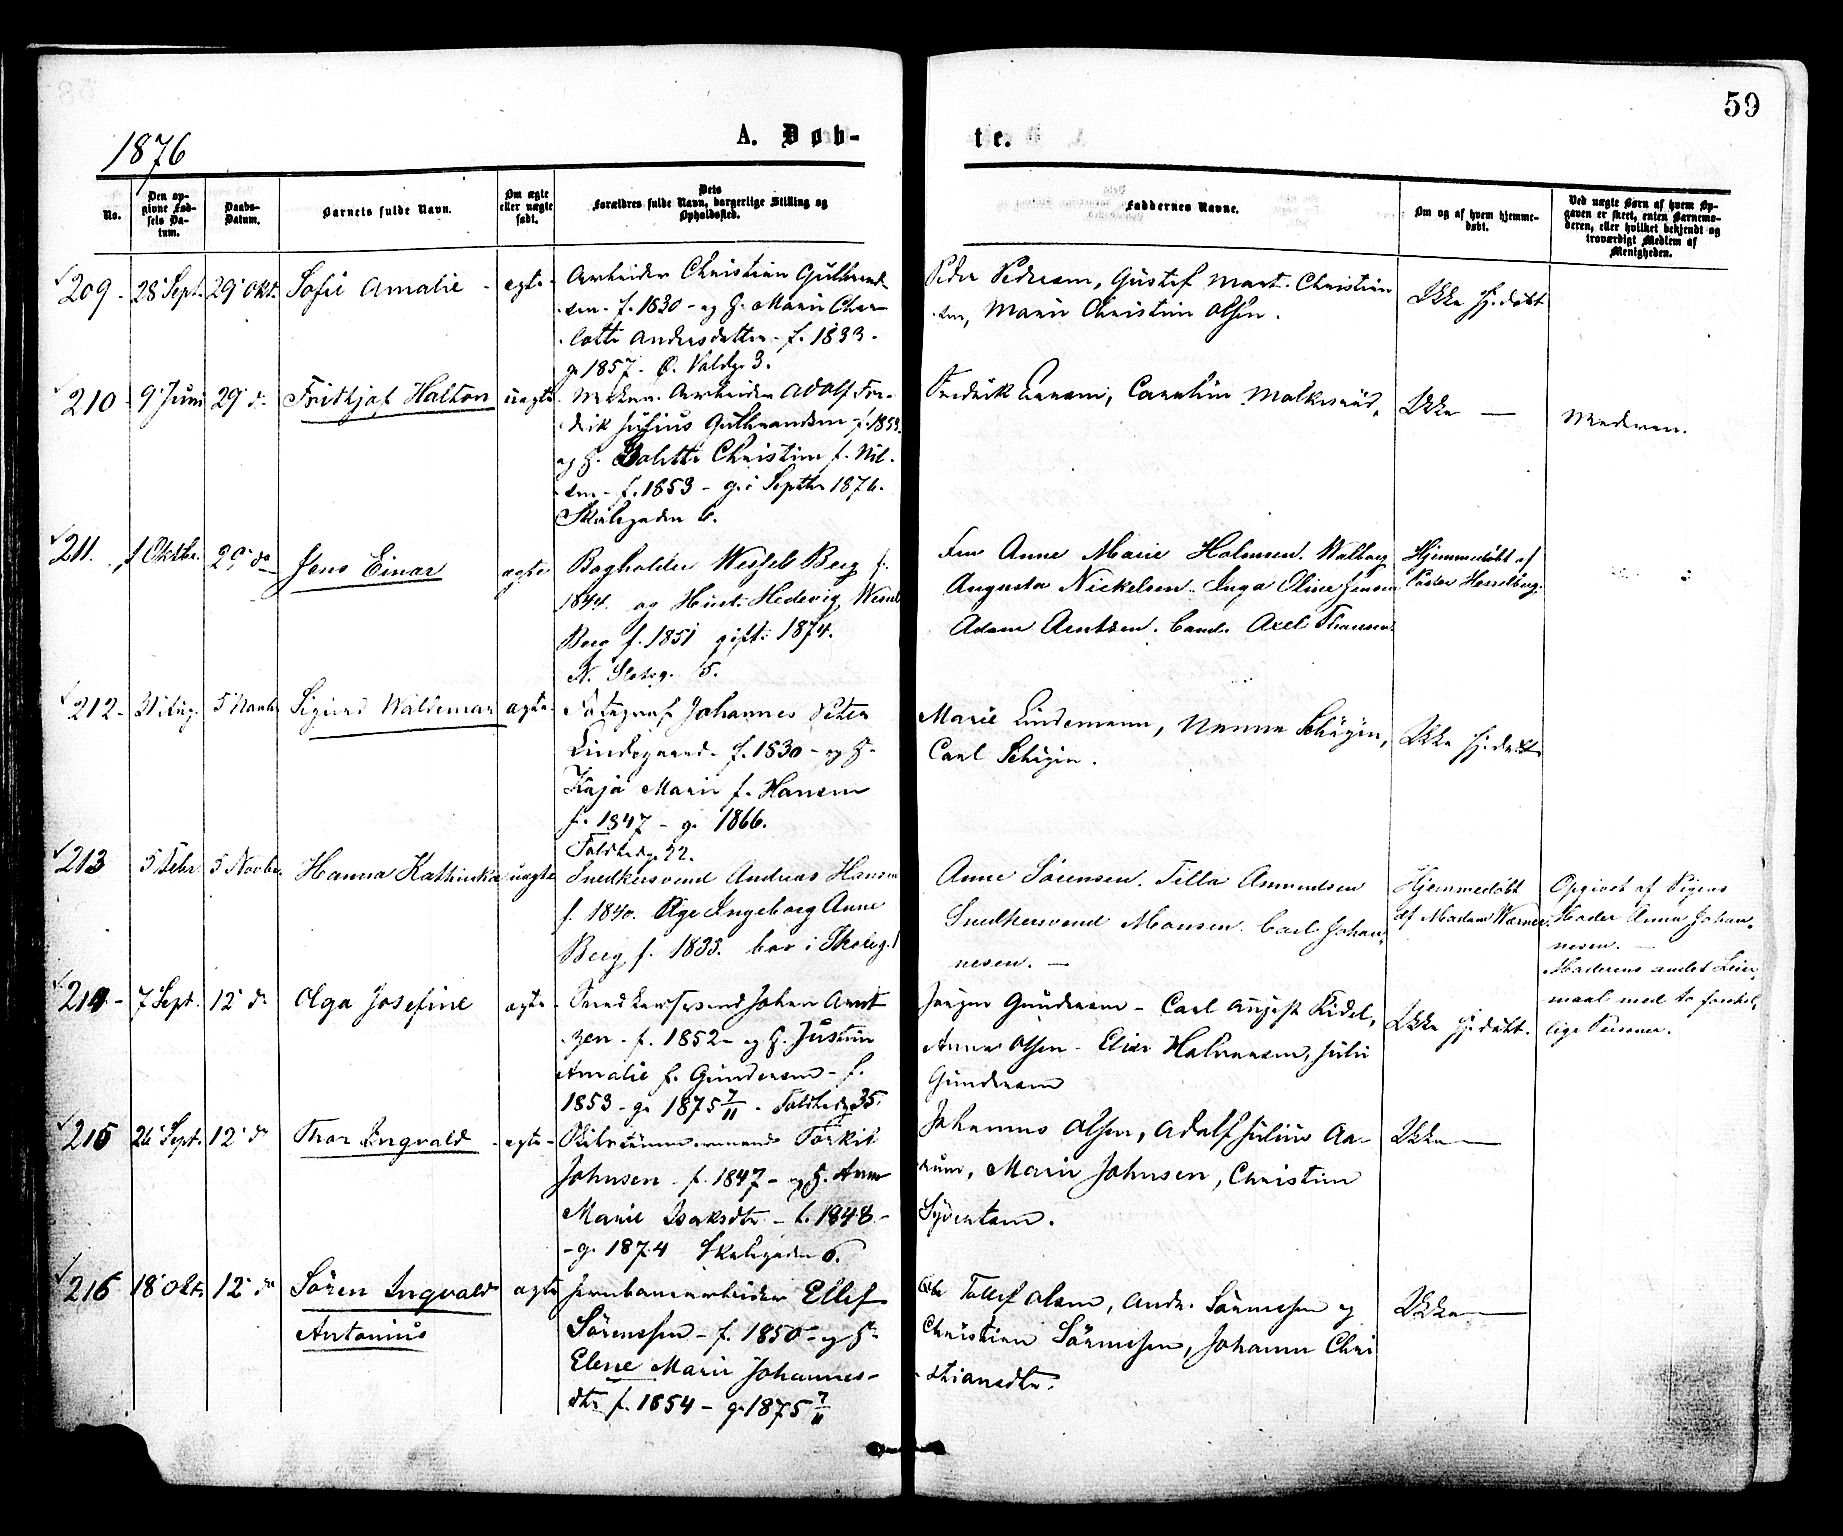 59
1876
A. Døb-
te.
No.
Den op-
givne Fød-
sels Da-
tum.
Daabs-
Datum.
Barnets fulde Navn.
Om ægte
eller uægte
født.
Dets
Forældres fulde Navn, borgerlige Stilling og
Opholdssted.
Faddernes Navne.
Om og af hvem hjemme-
døbt.
Ved uægte Børn af hvem Op-
gaven er skeet, enten Barnemo-
deren, eller hvilket bekjendt og
troværdigt Medlem af
Menigheden.
209 - 28 Sept. 29 Okt. Sofie Amalie - egte -
Arbeider Christian Gulbrand-
sen - f. 1830 - og H. Marie Char-
lotte Andersdatter - f. 1833 -
g. 1857 - Ø. Voldg. 3.
Peder Pedersen, Gustef Mart. Christian
sen, Marie Christine Olsen.
Ikke hj. døbt
210 - 9 Juni 29 do Fridtjof Halton uegte -
Mekan. Arbeider Adolf Fre-
drik Julius Gulbrandsen f. 1853
og H. Bolette Christine f. Nil-
sen - f. 1853 - g. i Septbr 1876.
Skolegaden 6.
Fredrik Larsen, Caroline
Ikke —
Moderen.
211. 1 Oktbr. 29 do Jens Einar ægte
Bogholder Wessel Berg f.
1844. og Hust. Hedevig Wessel
Berg f. 1851 gift: 1874.
N. Slotsg. 5.
Fru Anne Marie Holmsen. Walborg
Augusta Nickelsen. Inga Oline Jensen
Adam Arntzen. Cand. Axel
Hjemmedøbt af
Pastor Hesselberg.
212 - 31 Aug. 5 Novbr Sigurd Waldemar ægte -
Fotograf Johannes Peter
Lindegaard - f. 1830 - og H.
Kaja Marie f. Hansen
f. 1847 - g. 1866.
Toldbodg. 22.
Marie Lindemann, Nanna Schøyen,
Carl Schøyen.
Ikke hj. døbt
213 5 Febr 5 Novbr Hanna Kathinka uægte
Snedkersvend Andreas Hansen
f. 1840. Pige Ingeborg Anne
Berg f. 1833. boe i Skoleg. 1
Anne Sørensen. Tilla Amundsen
Snedkersvend Monsen. Carl Johan-
nesen. —
Hjemmedøbt
af Madam Wærner.
Opgivet af Pigens
Moder Anne Johan-
nesen. —
Moderens andet Leier-
maal med to forskjel-
lige Personer.
214 - 7 Sept. 12 do Olga Josefine ægte -
Snedkersvend Johan Arnt-
zen - f. 1852 - og H. Justine
Amalie f. Gundersen - f.
1853 - g. 1875 7/11 - Toldbodg 35.
Jørgen Gundersen - Carl August Kidel,
Anna Olsen - Elise Halvorsen, Julie
Gundersen
Ikke hj. døbt.
215 26 Sept. 12 do Thor Ingvald - egte -
Skibstømmermand Torkil
Johnsen - f. 1847 - og H. Anne
Marie Isaksdtr - f. 1848 -
- g. 1874 Skolegaden 6.
Johannes Olsen, Adolf Julius Aa-
rum, Marie Johnsen, Christine
Syvertsen.
Ikke —
216 18 Okt. 12 do Søren Ingvald ægte
Antonius
Jernbanearbeider Ellef
Sørensen - f. 1850 - og H.
Elene Marie Johannes-
dtr f. 1854 - g. 1875 7/11
Tollef Olsen, Andr. Sørensen og
Christian Sørensen, Johanne Chri
stiansdtr.
Ikke —